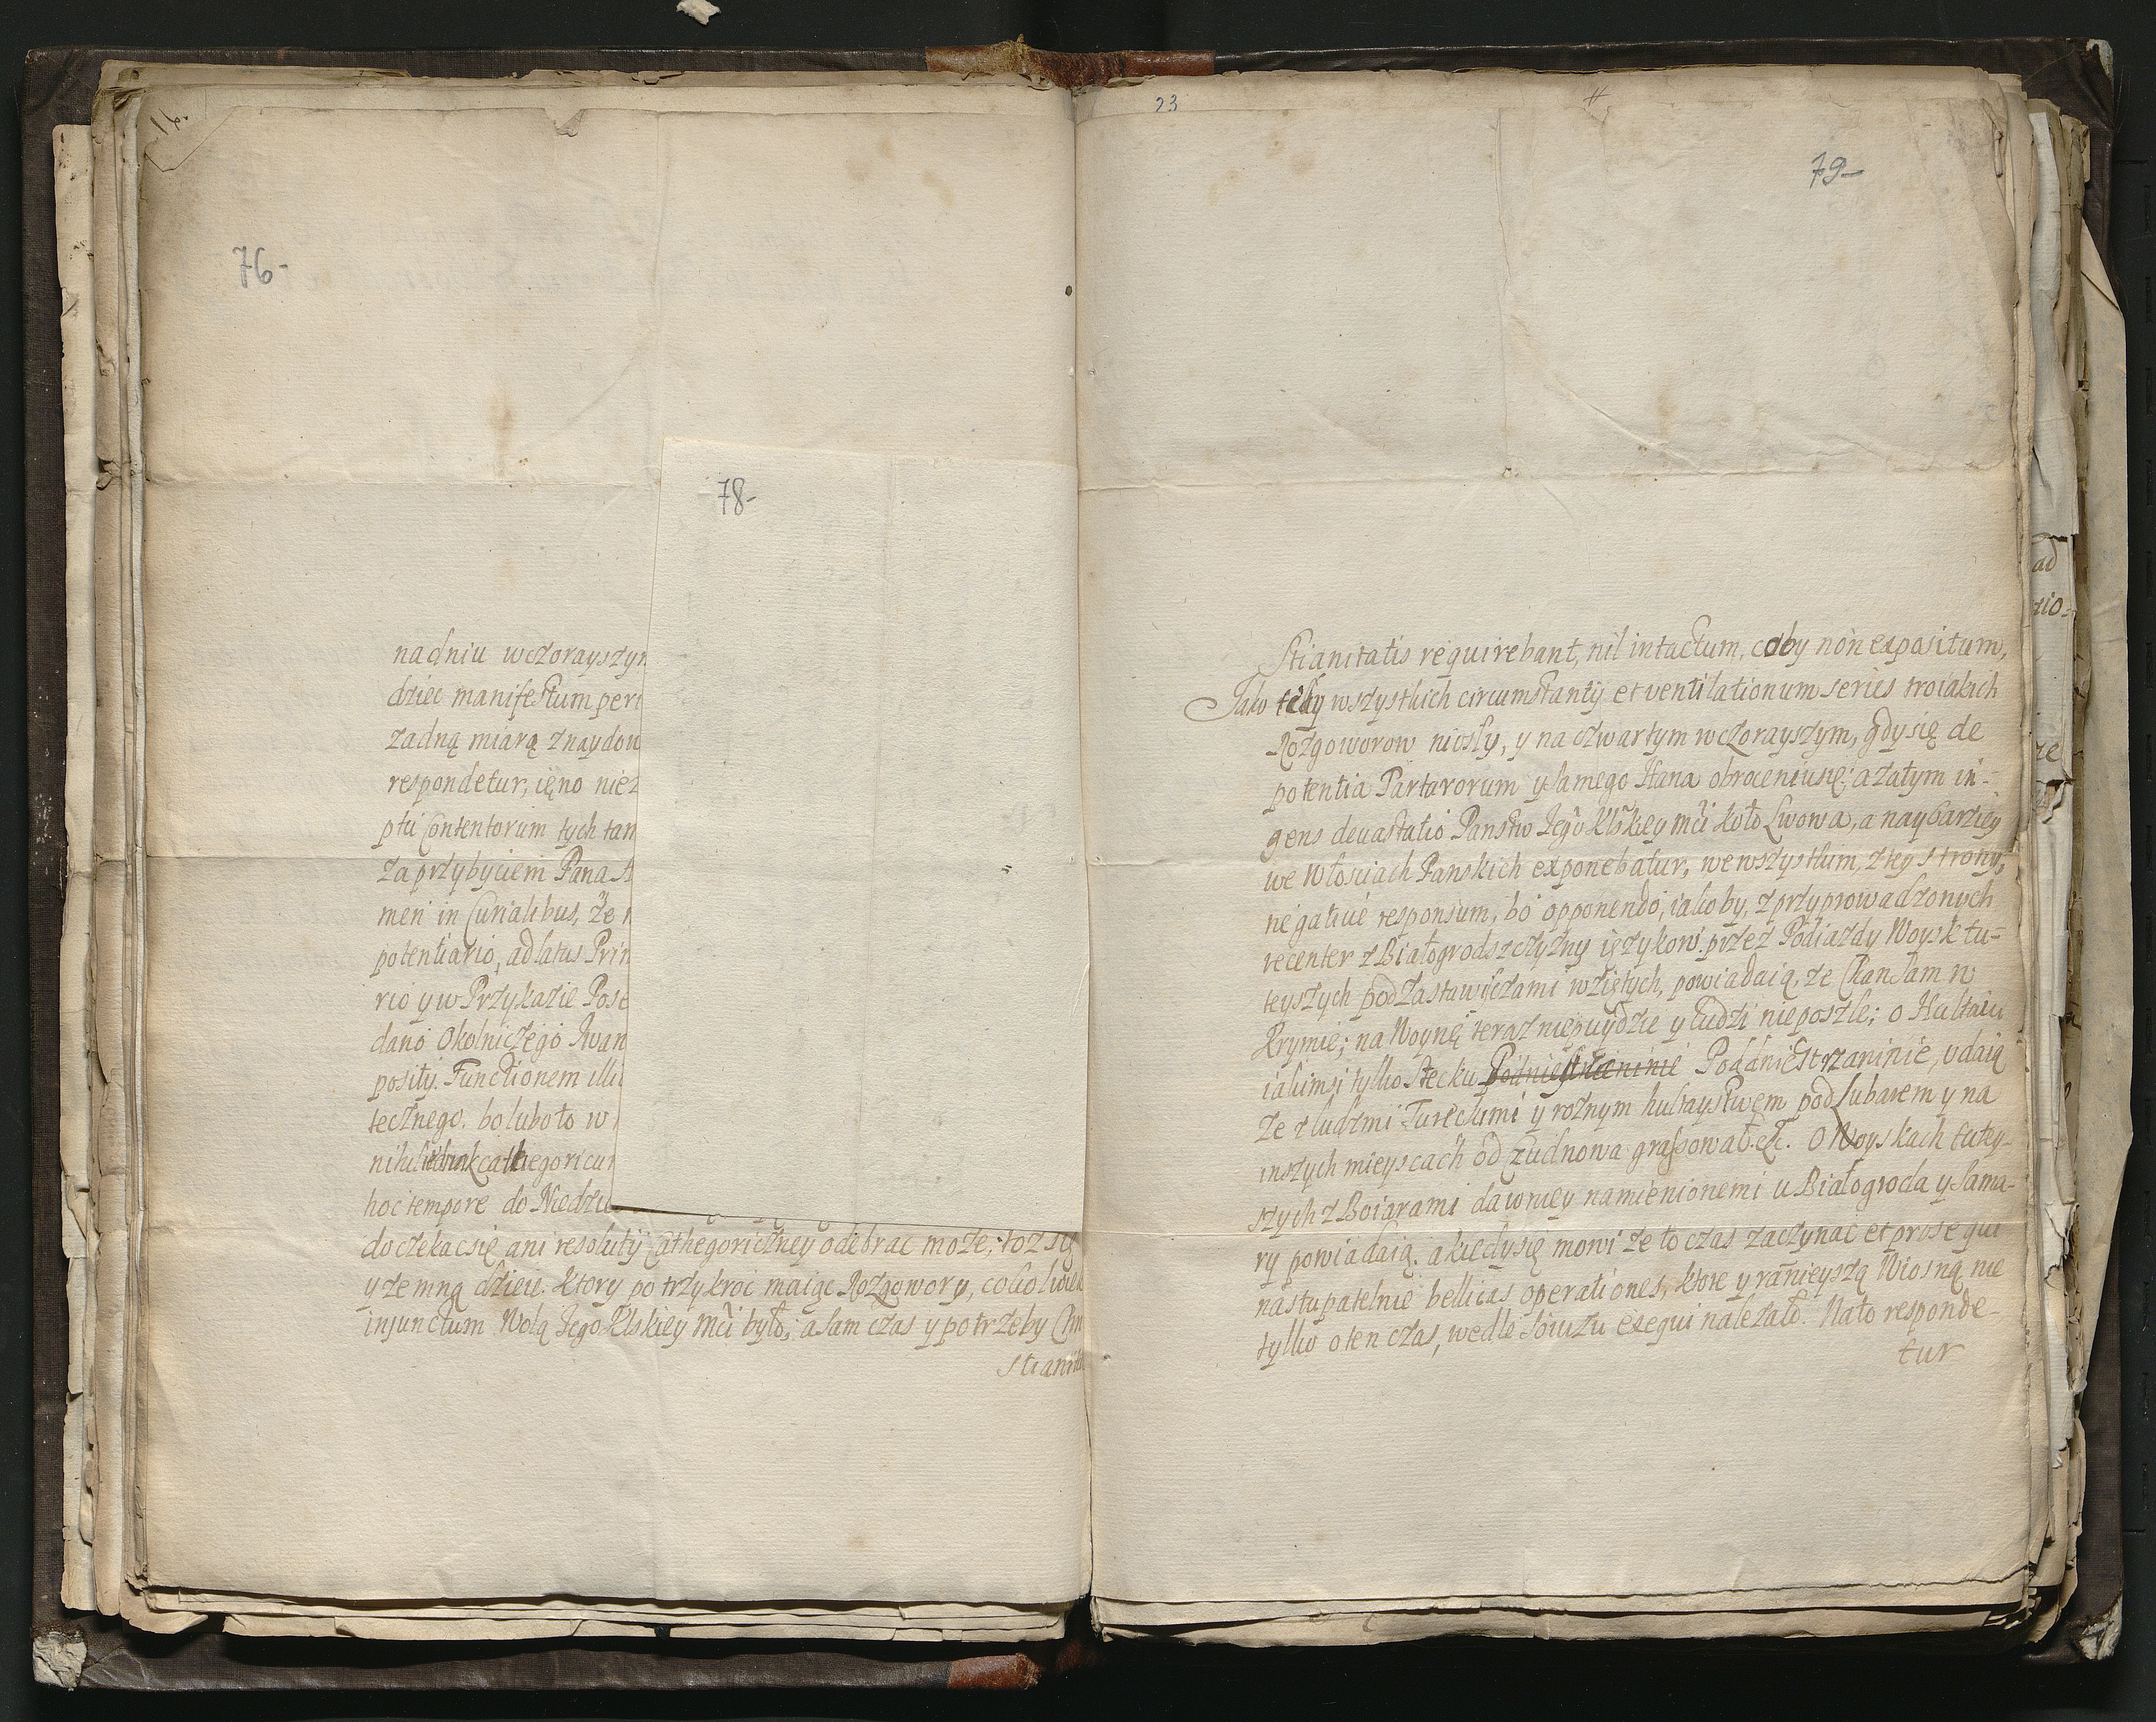 76-
78-
nadniu wczorayszym
dziec manifestum peri
zadną miarą znaydow
respondetur, ięno niez
ptu Contentorum tych tam
za przybyciem Pana A
men in Curialibus, że
potentiario, ad latus Prin
rio y w Przykazie Pose
dano Okolniczego Iwan
posity. Functionem illi
tecznego. bo lubo to w
nihil iednak cathegoricum
hoc tempore do Niedzie
doczekac się ani resolutÿ Cathegoriczney odebrac moze, toz się
y zemną dzieie. Ktory po trzykroc maiąc Rozgowory, cokolwiek
injunctum Wolą Jego Klskiey Mći było, a sam czas y potrzeby Chri
stianita
23
79-
Stianitatis requirebant, nil intactum, coby non expositum,
Jako tedy wszystkich circumstantÿ et ventilationum series troiakich
Rozgoworow niosły, y na czwartym wczorayszym, gdy się de
potentia Tartarorum y samego Hana obroceniu się; a zatym in-
gens deuastatio Panstw Jego Klskiey mći koło Lwowa, a naybarziey
we Włosciach Panskich exponebatur, we wszystkim, z tey strony,
negatiue responsum, bo opponendo, iakoby, z przyprowadzonych
recenter z Białogrodszczyzny ięzykow przez Podiazdy Woysk tu-
teyszych pod Zastawiczami wziętych, powiadaią, ze Chan sam w
Krymie; na Woynę teraz nie puydzie y ludzi nie poszle; o Hultaiu
iakimsi tylko Stecku Podniestrzaninie Podniestrzaninie, udaią
ze z ludzmi Tureckimi y roznym hultaystwem pod Lubarem y na
inszych mieyscach od Czudnowa grassował. etc. O Woyskach tutey-
szych z Boiarami dawniey namienionemi u Białogroda y Sama-
ry powiadaią. a kiedy się mowi ze to czas zaczynac et prosequi
nastupatelnie bellicas operationes, ktore y ranieyszą Wiosną nie
tylko o ten czas, wedle Soiuzu exequi nalezało. Na to responde-
tur